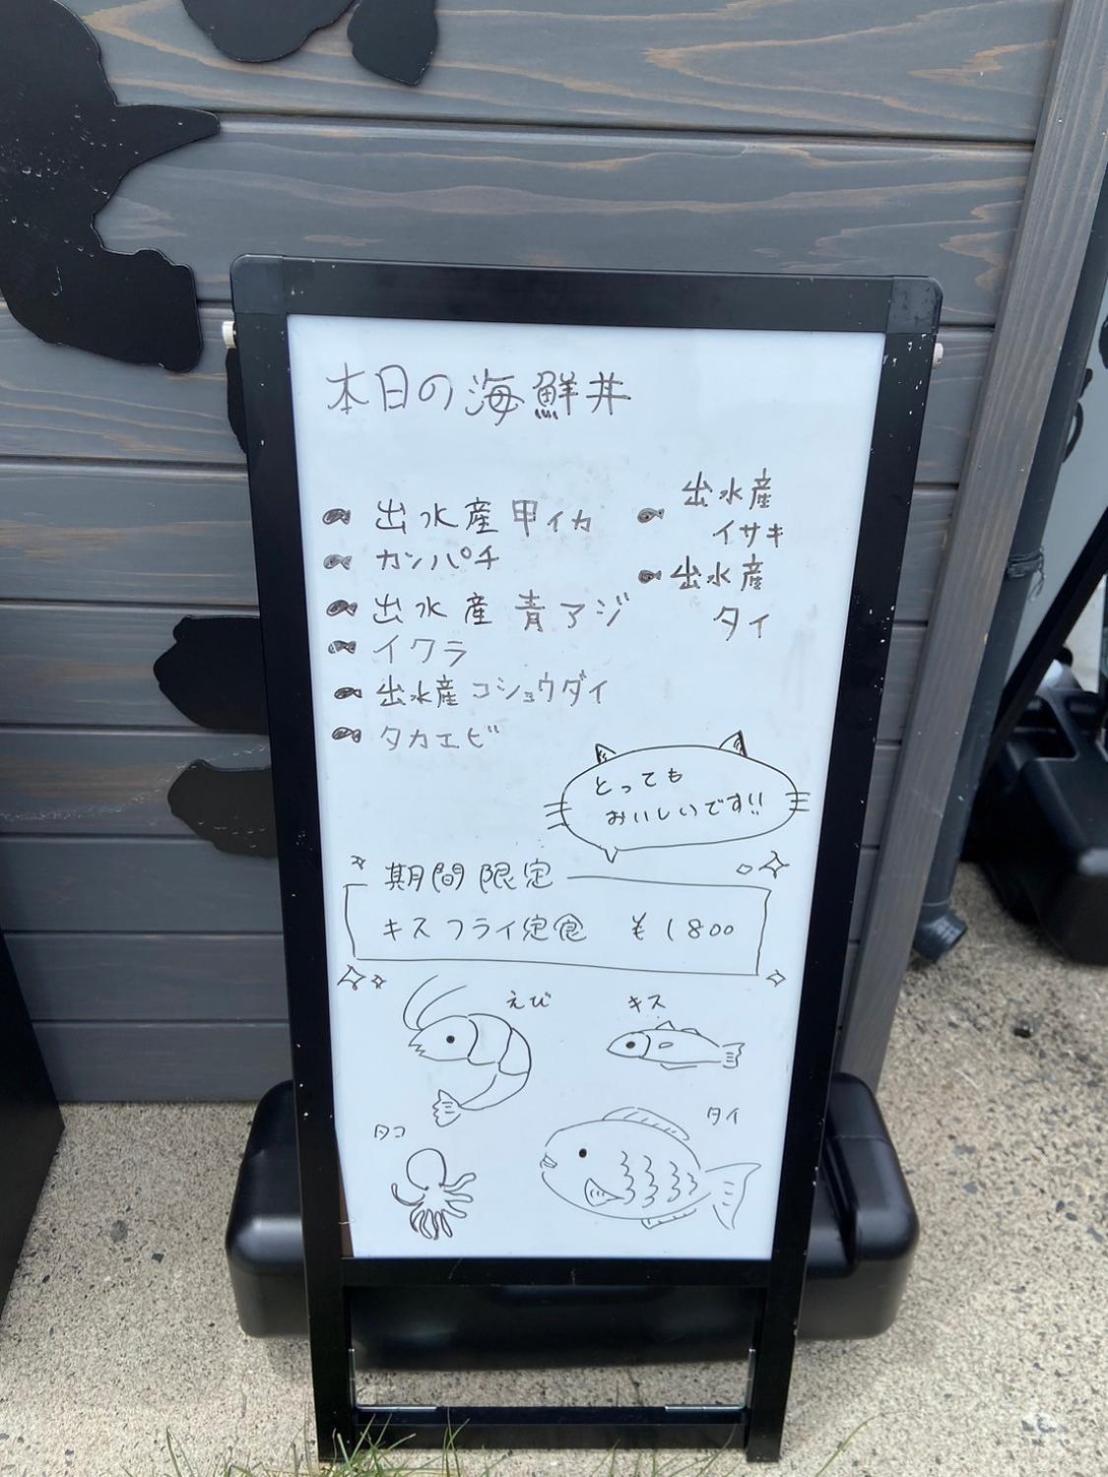 本日の海鮮丼
出水産 甲イカ
カンパチ
出水産 青アジ
イクラ
出水産 コショウダイ
タカエビ
出水産
イサキ
出水産
タイ
とっても
おいしいです!!
期間限定
キスフライ定食 ¥1800
えび
キス
タコ
タイ